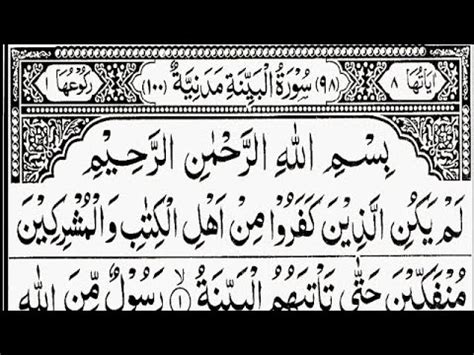 اٰيَاتُهَا ٨ (٩٨) سُوْرَةُ الْبَيِّنَةِ مَدَنِيَّةٌ (١٠٠) رُكُوْعُهَا ١
بِسْمِ اللّٰهِ الرَّحْمٰنِ الرَّحِيْمِ
لَمْ يَكُنِ الَّذِيْنَ كَفَرُوْا مِنْ اَهْلِ الْكِتٰبِ وَالْمُشْرِكِيْنَ
مُنْفَكِّيْنَ حَتّٰى تَاْتِيَهُمُ الْبَيِّنَةُ ۙ﴿١﴾ رَسُوْلٌ مِّنَ اللّٰهِ